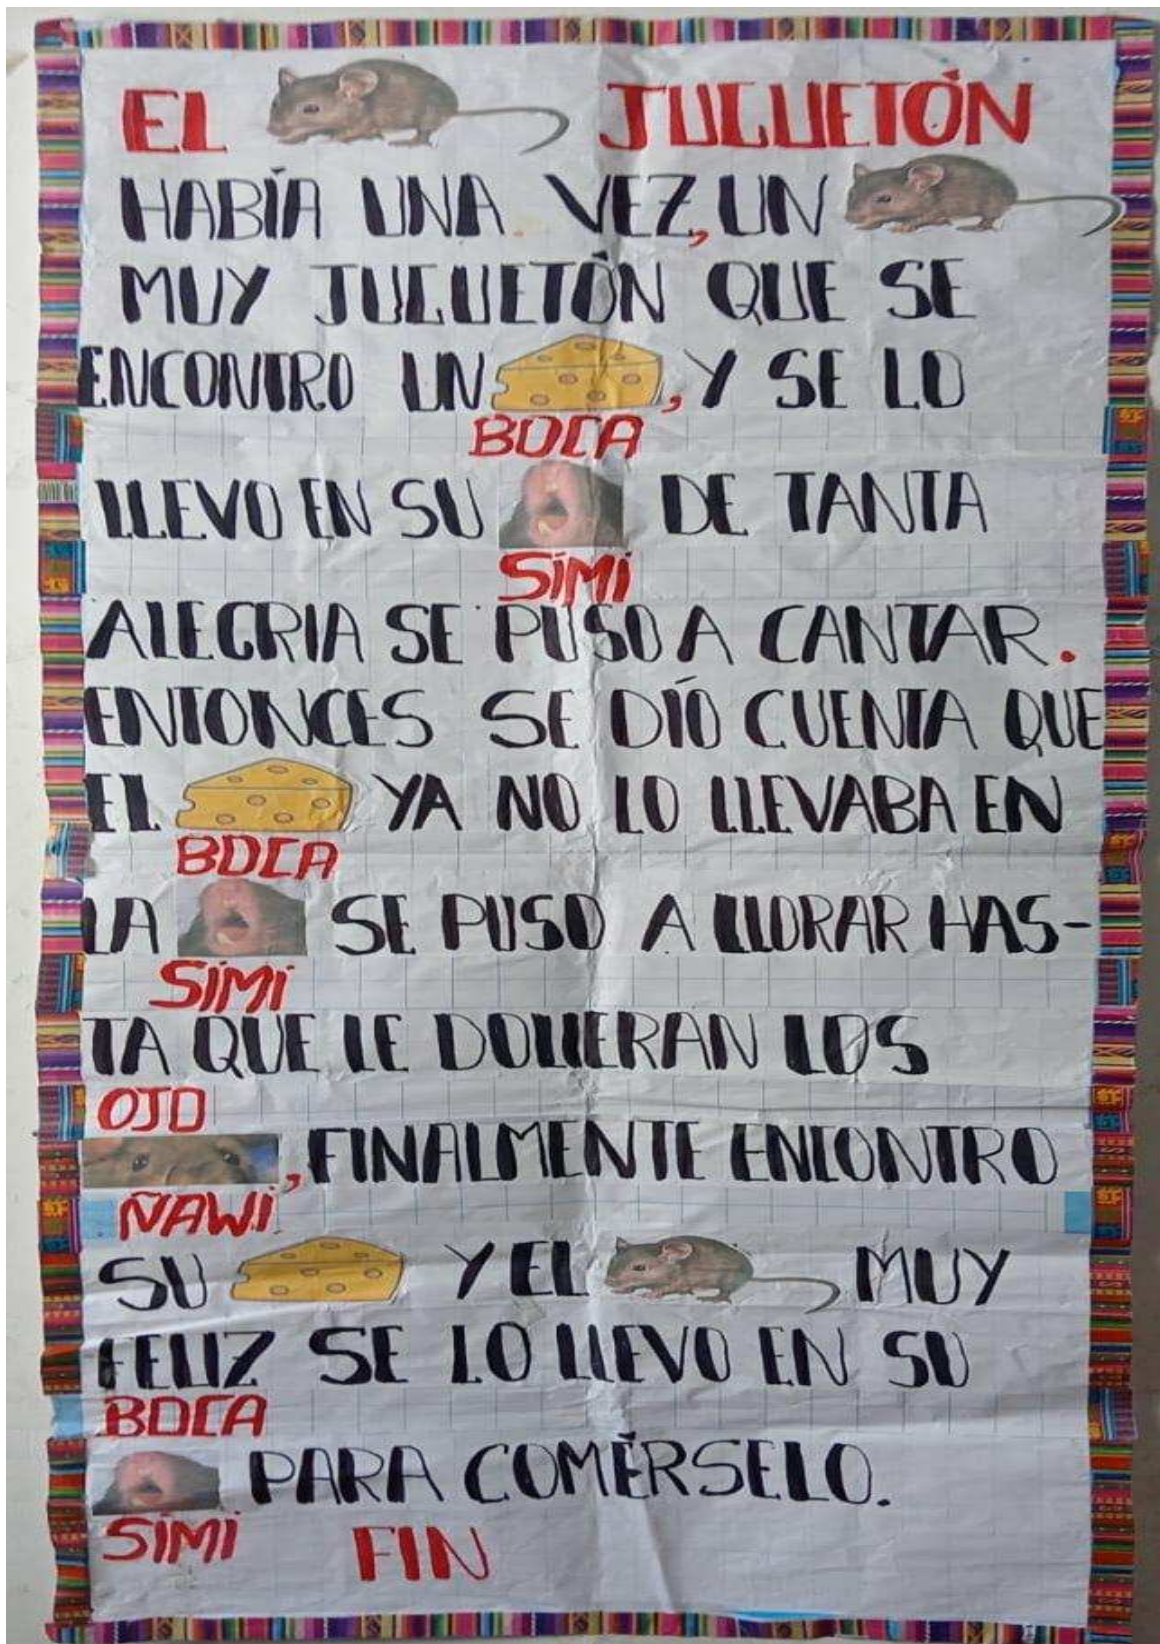 EL JUGUETÓN
HABÍA UNA VEZ, UN
MUY JUGUETÓN QUE SE
ENCONTRO UN , Y SE LO
BOCA
LLEVO EN SU DE TANTA
SIMI
ALEGRIA SE PUSO A CANTAR.
ENTONCES SE DÍO CUENTA QUE
EL YA NO LO LLEVABA EN
BOCA
LA SE PUSO A LLORAR HAS-
SIMI
TA QUE LE DOLIERAN LOS
OJO
, FINALMENTE ENCONTRO
ÑAWI
SU Y EL MUY
FELIZ SE LO LLEVO EN SU
BOCA
PARA COMÉRSELO.
SIMI FIN